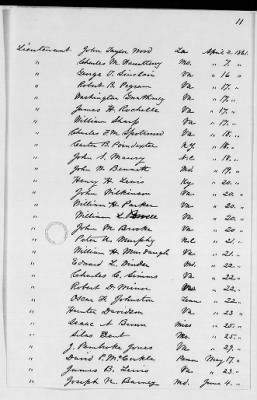 11
Lieutenant John Taylor Wood La April 2, 1861.
" Charles M. Fauntleroy Mo. " 7. "
" George T. Sinclair Va " 16 "
" Robert B. Pegram Va " 17. "
" Washington Gwathmey Va " 17. "
" James H. Rochelle Va " 17. "
" William Sharp Va " 17. "
" Charles F. M. Spotswood Va " 18. "
" Carter B. Poindexter " 18. "
" John S. Maury " 18. "
" John N. Bennett Md " 19. "
" Henry H. Lewis " 20. "
" John Wilkinson Va " 20. "
" William H. Parker Va " 20. "
" William L. Va " 20. "
" John M. Brooke Va " 20. "
" Peter U. Murphy N.C " 21. "
" William H. Murdaugh Va " 21. "
" Edward L. Winder Md " 22. "
" Charles C. Simms Va " 22. "
" Robert D. Minor Va " 22. "
" Oscar F. Johnston Tenn " 22. "
" Hunter Davidson Va " 23 "
" Isaac N. Brown Miss " 25. "
" Silas Bent Mo. " 25. "
" J. Pembroke Jones Va " 29. "
" David P. McCorkle Penn May 17. "
" James B. Lewis Va " 23. "
" Joseph N. Barney Md. June 4. "